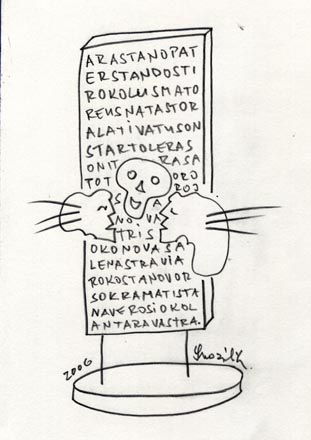 ARASTANOPAT
ERSTANDOSTI
ROKOLUSMATO
REUSNATASTOR
ALAYIVATUSON
STARTOLERAS
ONIT RASA
TOT ORO
ROJ
S A
NOVA
TRIS
OKONOVASA
LENASTRAVIA
ROKOSTANOVOR
SOKRAMATISTA
NAVEROSIOKOL
ANTARAVASTRA.
2006